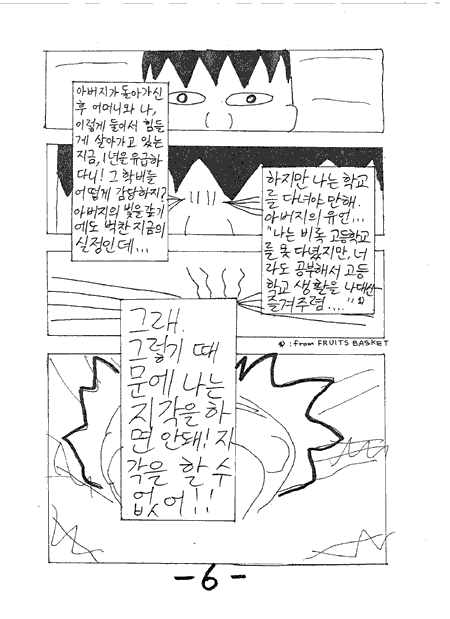 아버지가 돌아가신
후 어머니와 나,
이렇게 둘이서 힘들
게 살아가고 있는
지금, 1년을 유급하
다니! 그 학비를
어떻게 감당하지?
아버지의 빚을 갚기
에도 벅찬 지금의
실정인데...
하지만 나는 학교
를 다녀야만 해.
아버지의 유언...
"나는 비록 고등학교
를 못 다녔지만, 너
라도 공부해서 고등
학교 생활을 나 대신
즐겨주렴...."①
①:from FRUITS BASKET
그래.
그렇기 때
문에 나는
지각을 하
면 안돼! 지
각을 할 수
없어!!
-6-